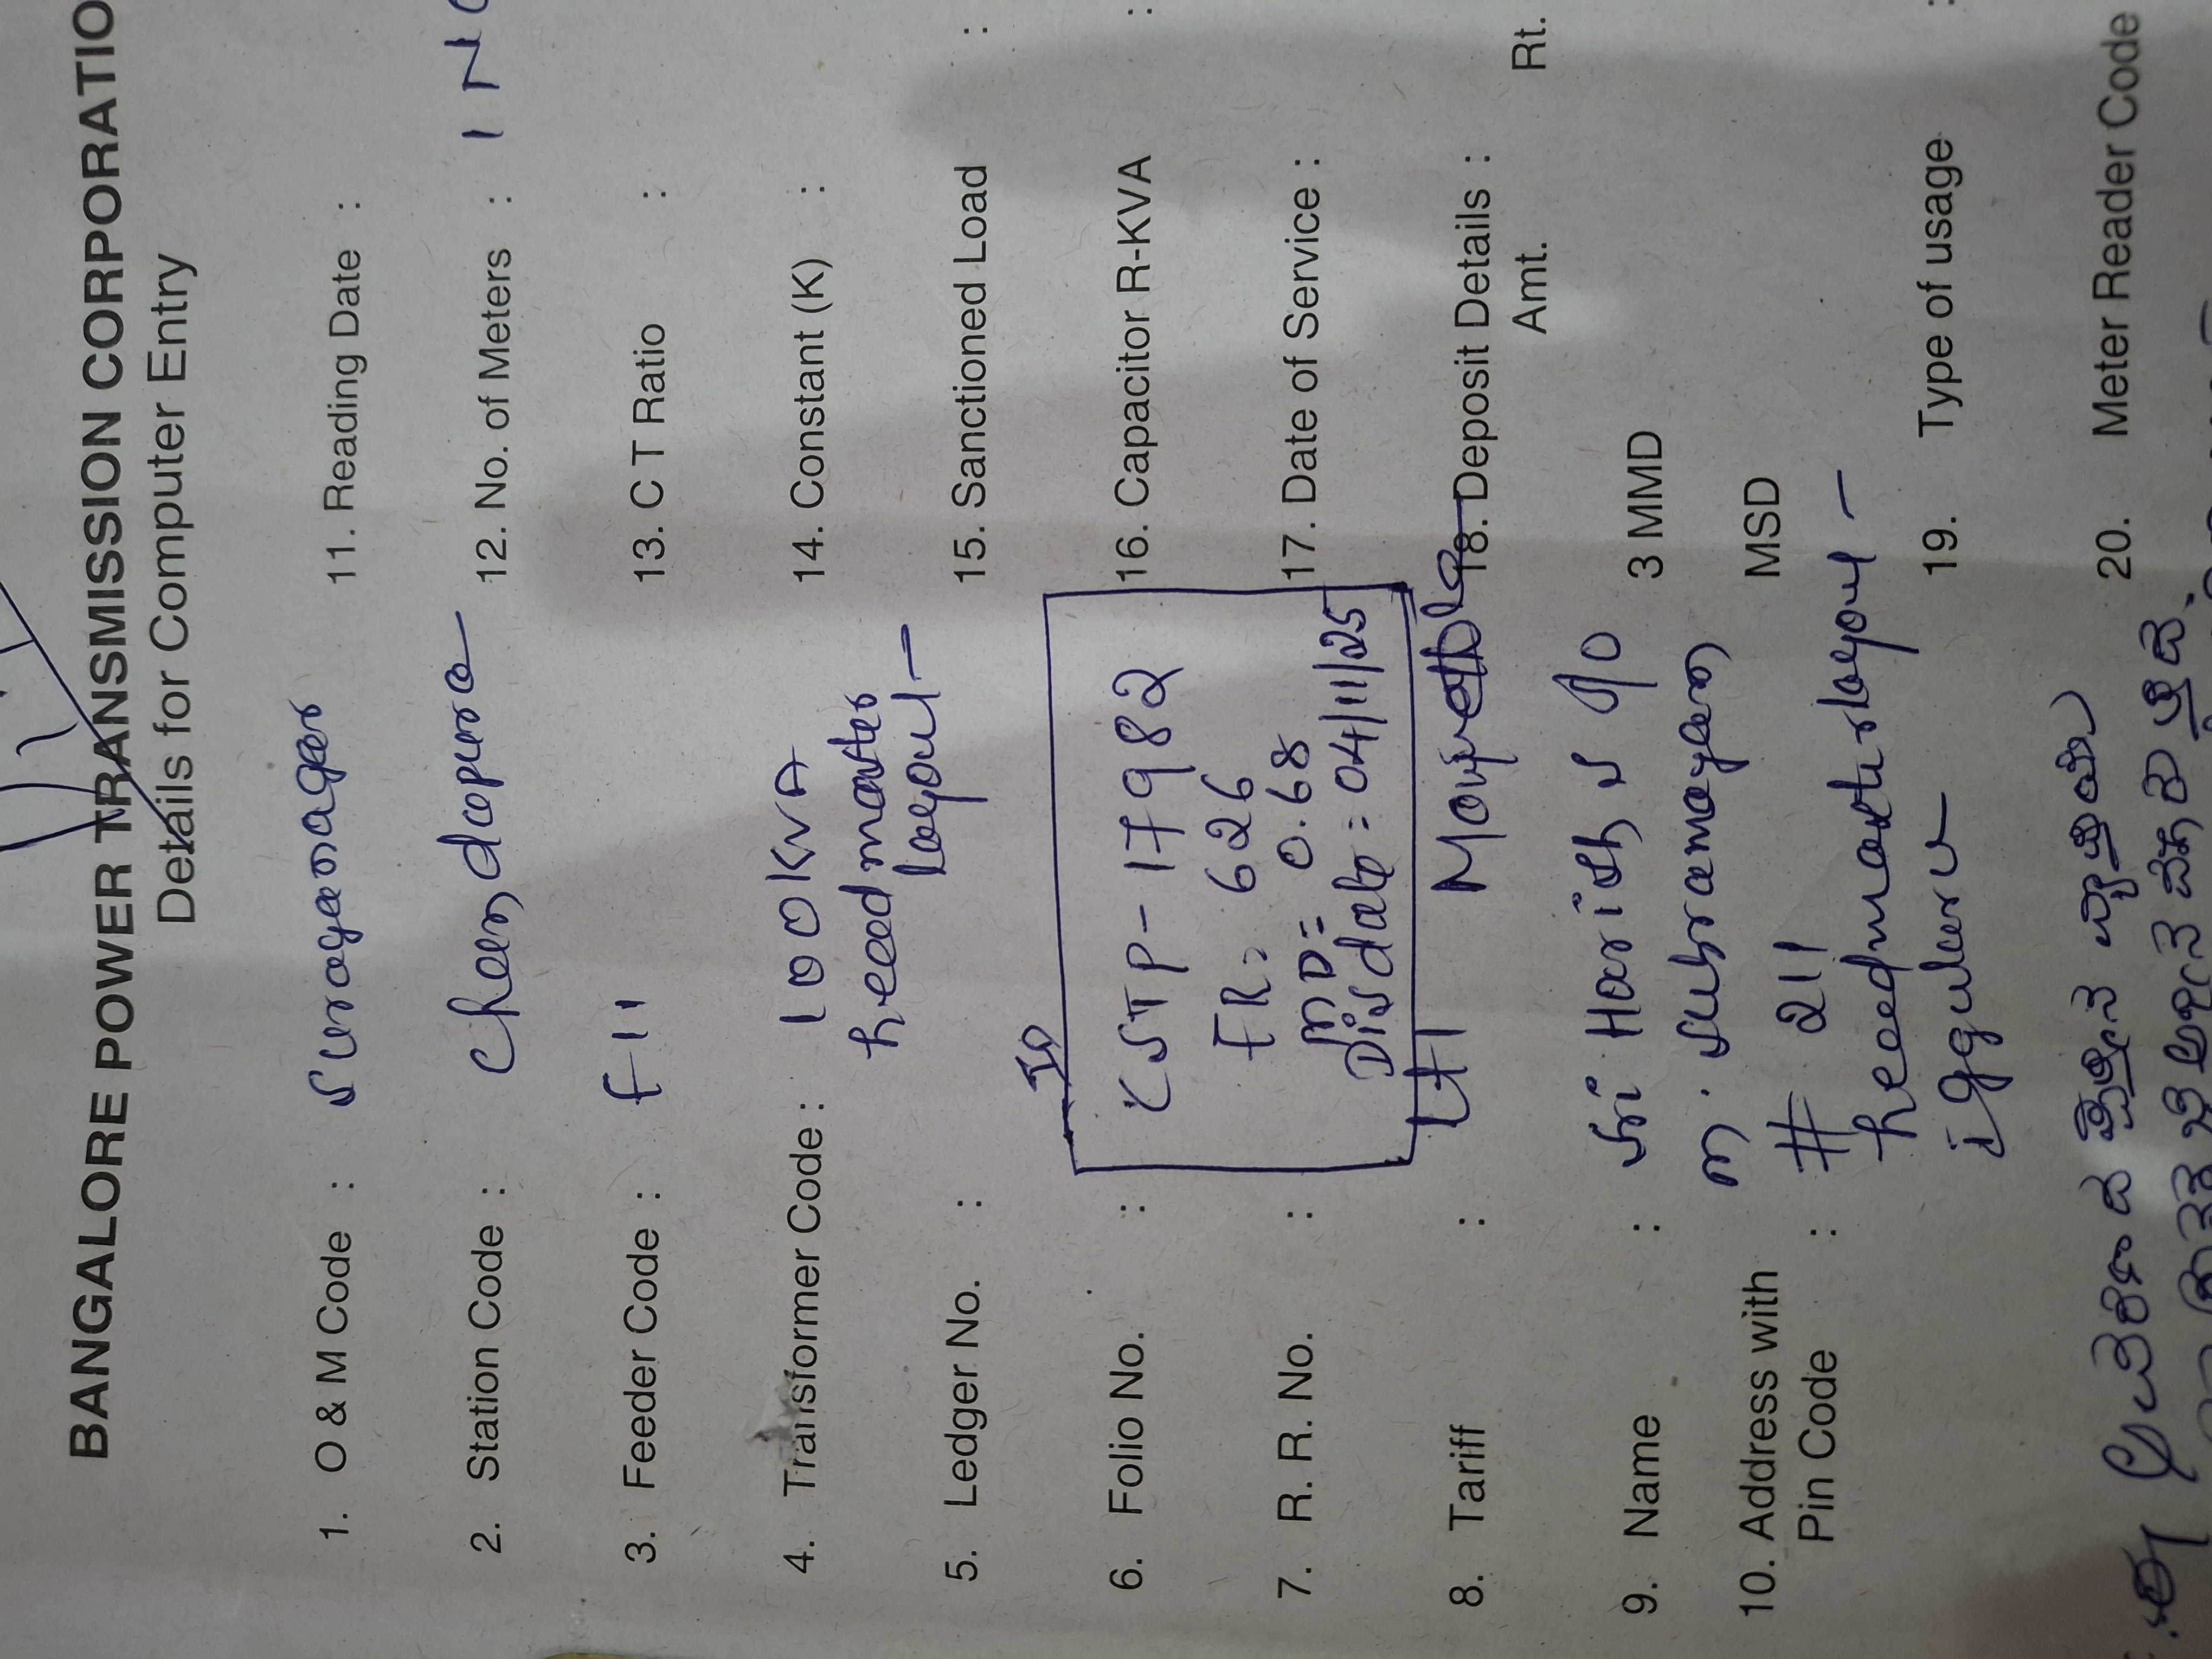 BANGALORE POWER TRANSMISSION CORPORATIO
Details for Computer Entry
1. O & M Code : suryanager
2. Station Code : Chandapura
3. Feeder Code : F11
4. Transformer Code : 100KVA
headmaster
layout
5. Ledger No. :
6. Folio No. : CSTP-17982
FR= 626
7. R. R. No. : MD= 0.68
Dis date = 04/11/25
8. Tariff : LT1
9. Name : sri Harish s S/o
m. subramayam
10. Address with
Pin Code : # 211
headmaster layout
iggulur
11. Reading Date :
12. No. of Meters : 1 No
13. C T Ratio :
14. Constant (K) :
15. Sanctioned Load :
16. Capacitor R-KVA :
17. Date of Service :
18. Deposit Details :
Amt. Rt.
3 MMD
MSD
19. Type of usage :
20. Meter Reader Code